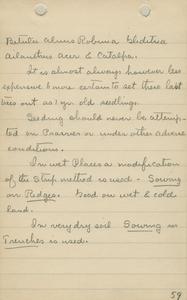 Betula Alnus Robinia Gleditsia
Ailanthus Acer & Catalpa.
It is almost always however less
expensive & more certain to set these last
trees out as 1 yr old seedlings.
Seeding should never be attemp-
ted on Prairies or under other adverse
conditions.
In wet Places a modification
of the Strip method is used - Sowing
on Ridges. Good on wet & cold
land.
In very dry soil Sowing in
Trenches is used.
59